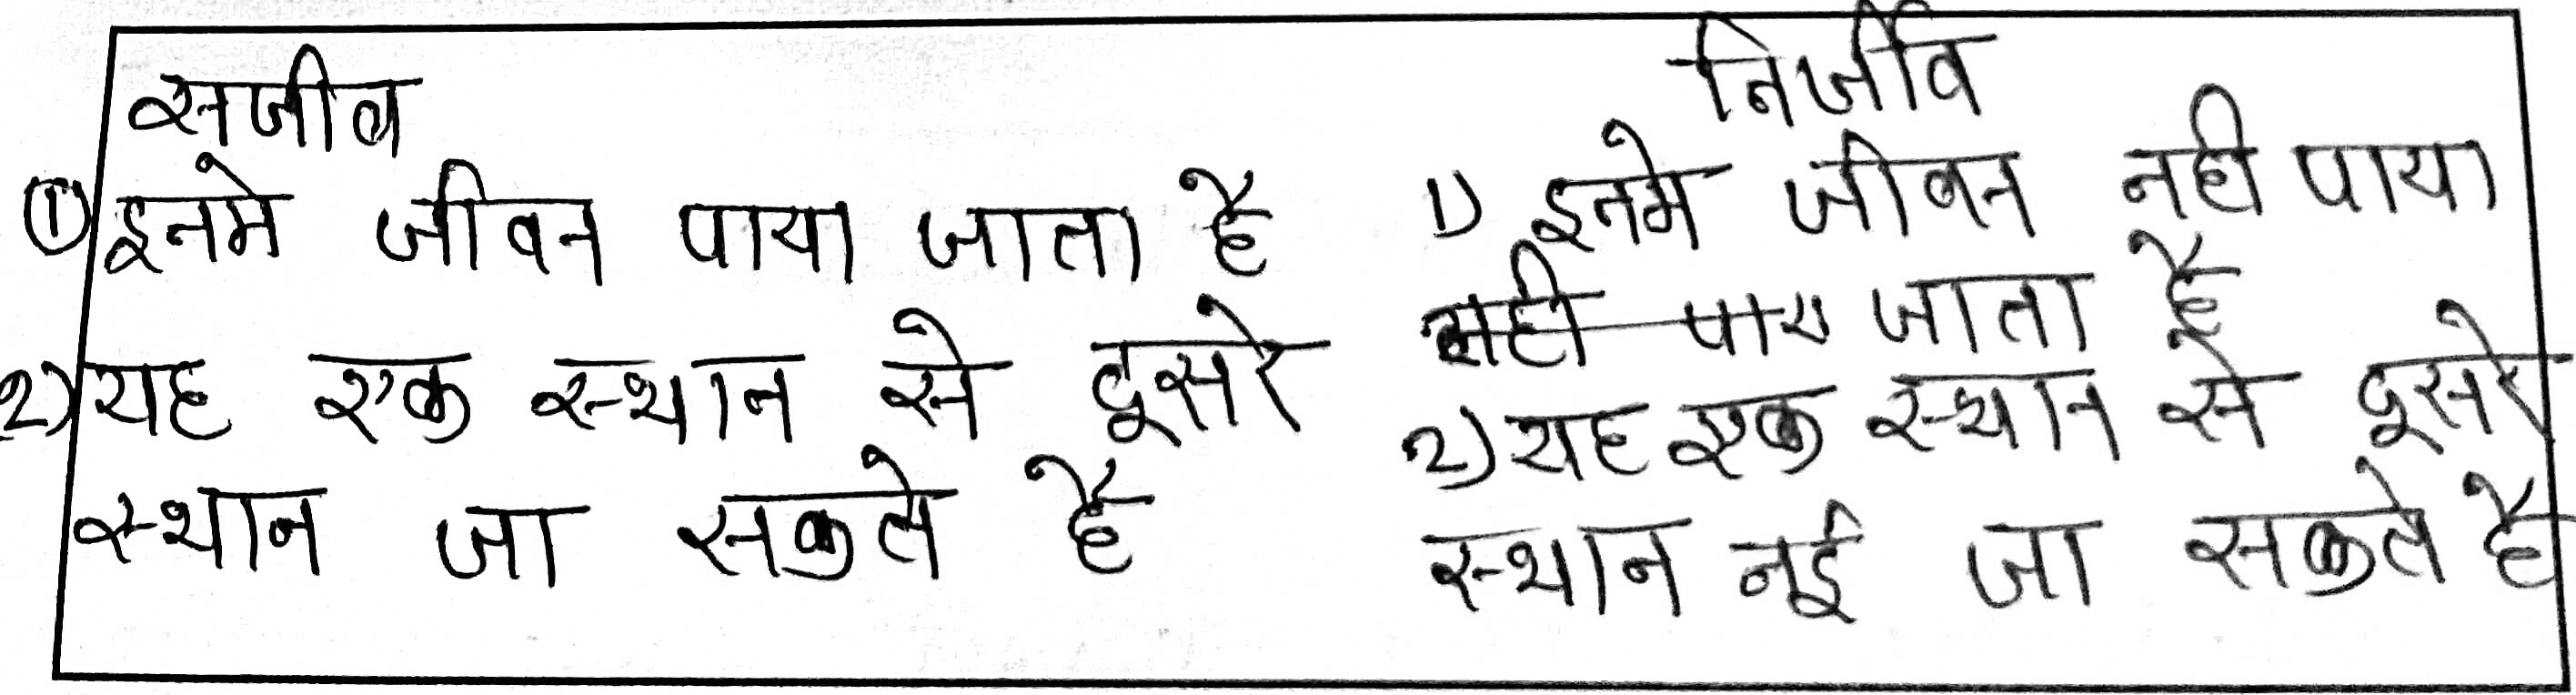 सजीव
① इनमे जीवन पाया जाता है
2) यह एक स्थान से दूसरे
स्थान जा सकते है
निर्जीव
1) इनमे जीवन नही पाया
नही पाए जाता है
2) यह एक स्थान से दूसरे
स्थान नई जा सकते है